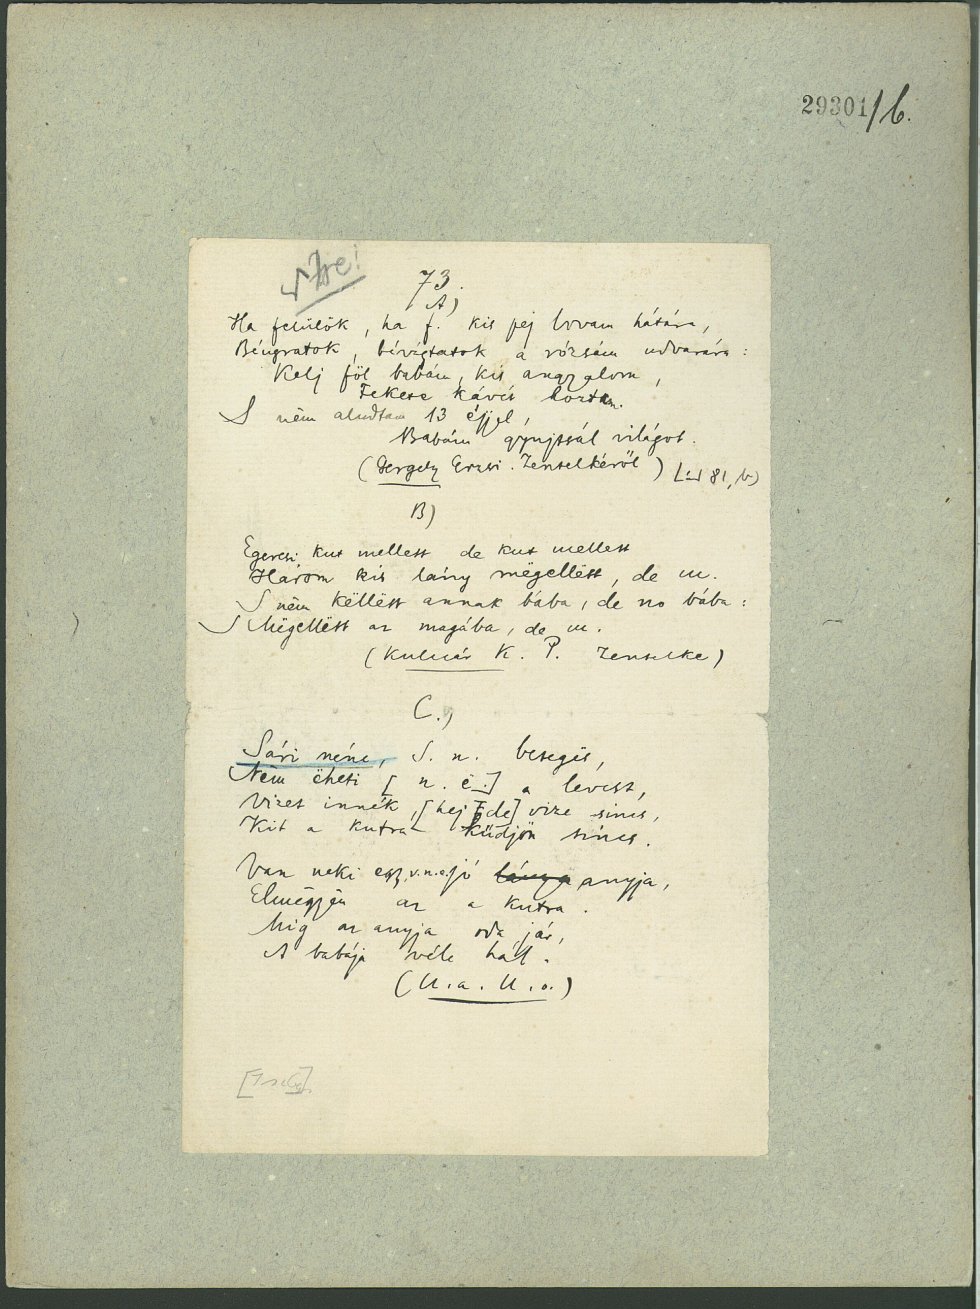 29301/6.
73.
A)
Ha felülök, ha f. kis pej lovam hátára,
Béugratok, bévágtatok a rózsám udvarára:
Kelj föl babám, kis angyalom,
Fekete kávét hoztam.
S něm aludtam 13 éjjel,
Babám gyujtsál világot.
(Gergely Erzsi. Zentelkéről) Lásd 81, b)
B)
Egeresi kut mellett de kut mellett
Három kis lány mëgellëtt, de m.
S nëm këllëtt annak bába, de no bába:
S Mëgellëtt az magába, de m.
(Kulcsár K. P. Zentelke)
C.)
Sári néne, S. n. betegës,
Nëm ëheti [n. ë.] a levest,
Vizet innék, [hej de] vize sincs,
Kit a kutra küdjön sincs.
Van neki egy, v.n.e. jó lánya anyja,
Elmëgyën az a kutra.
Mig az anyja oda jár,
A babája véle hált.
(U. a. U. o.)